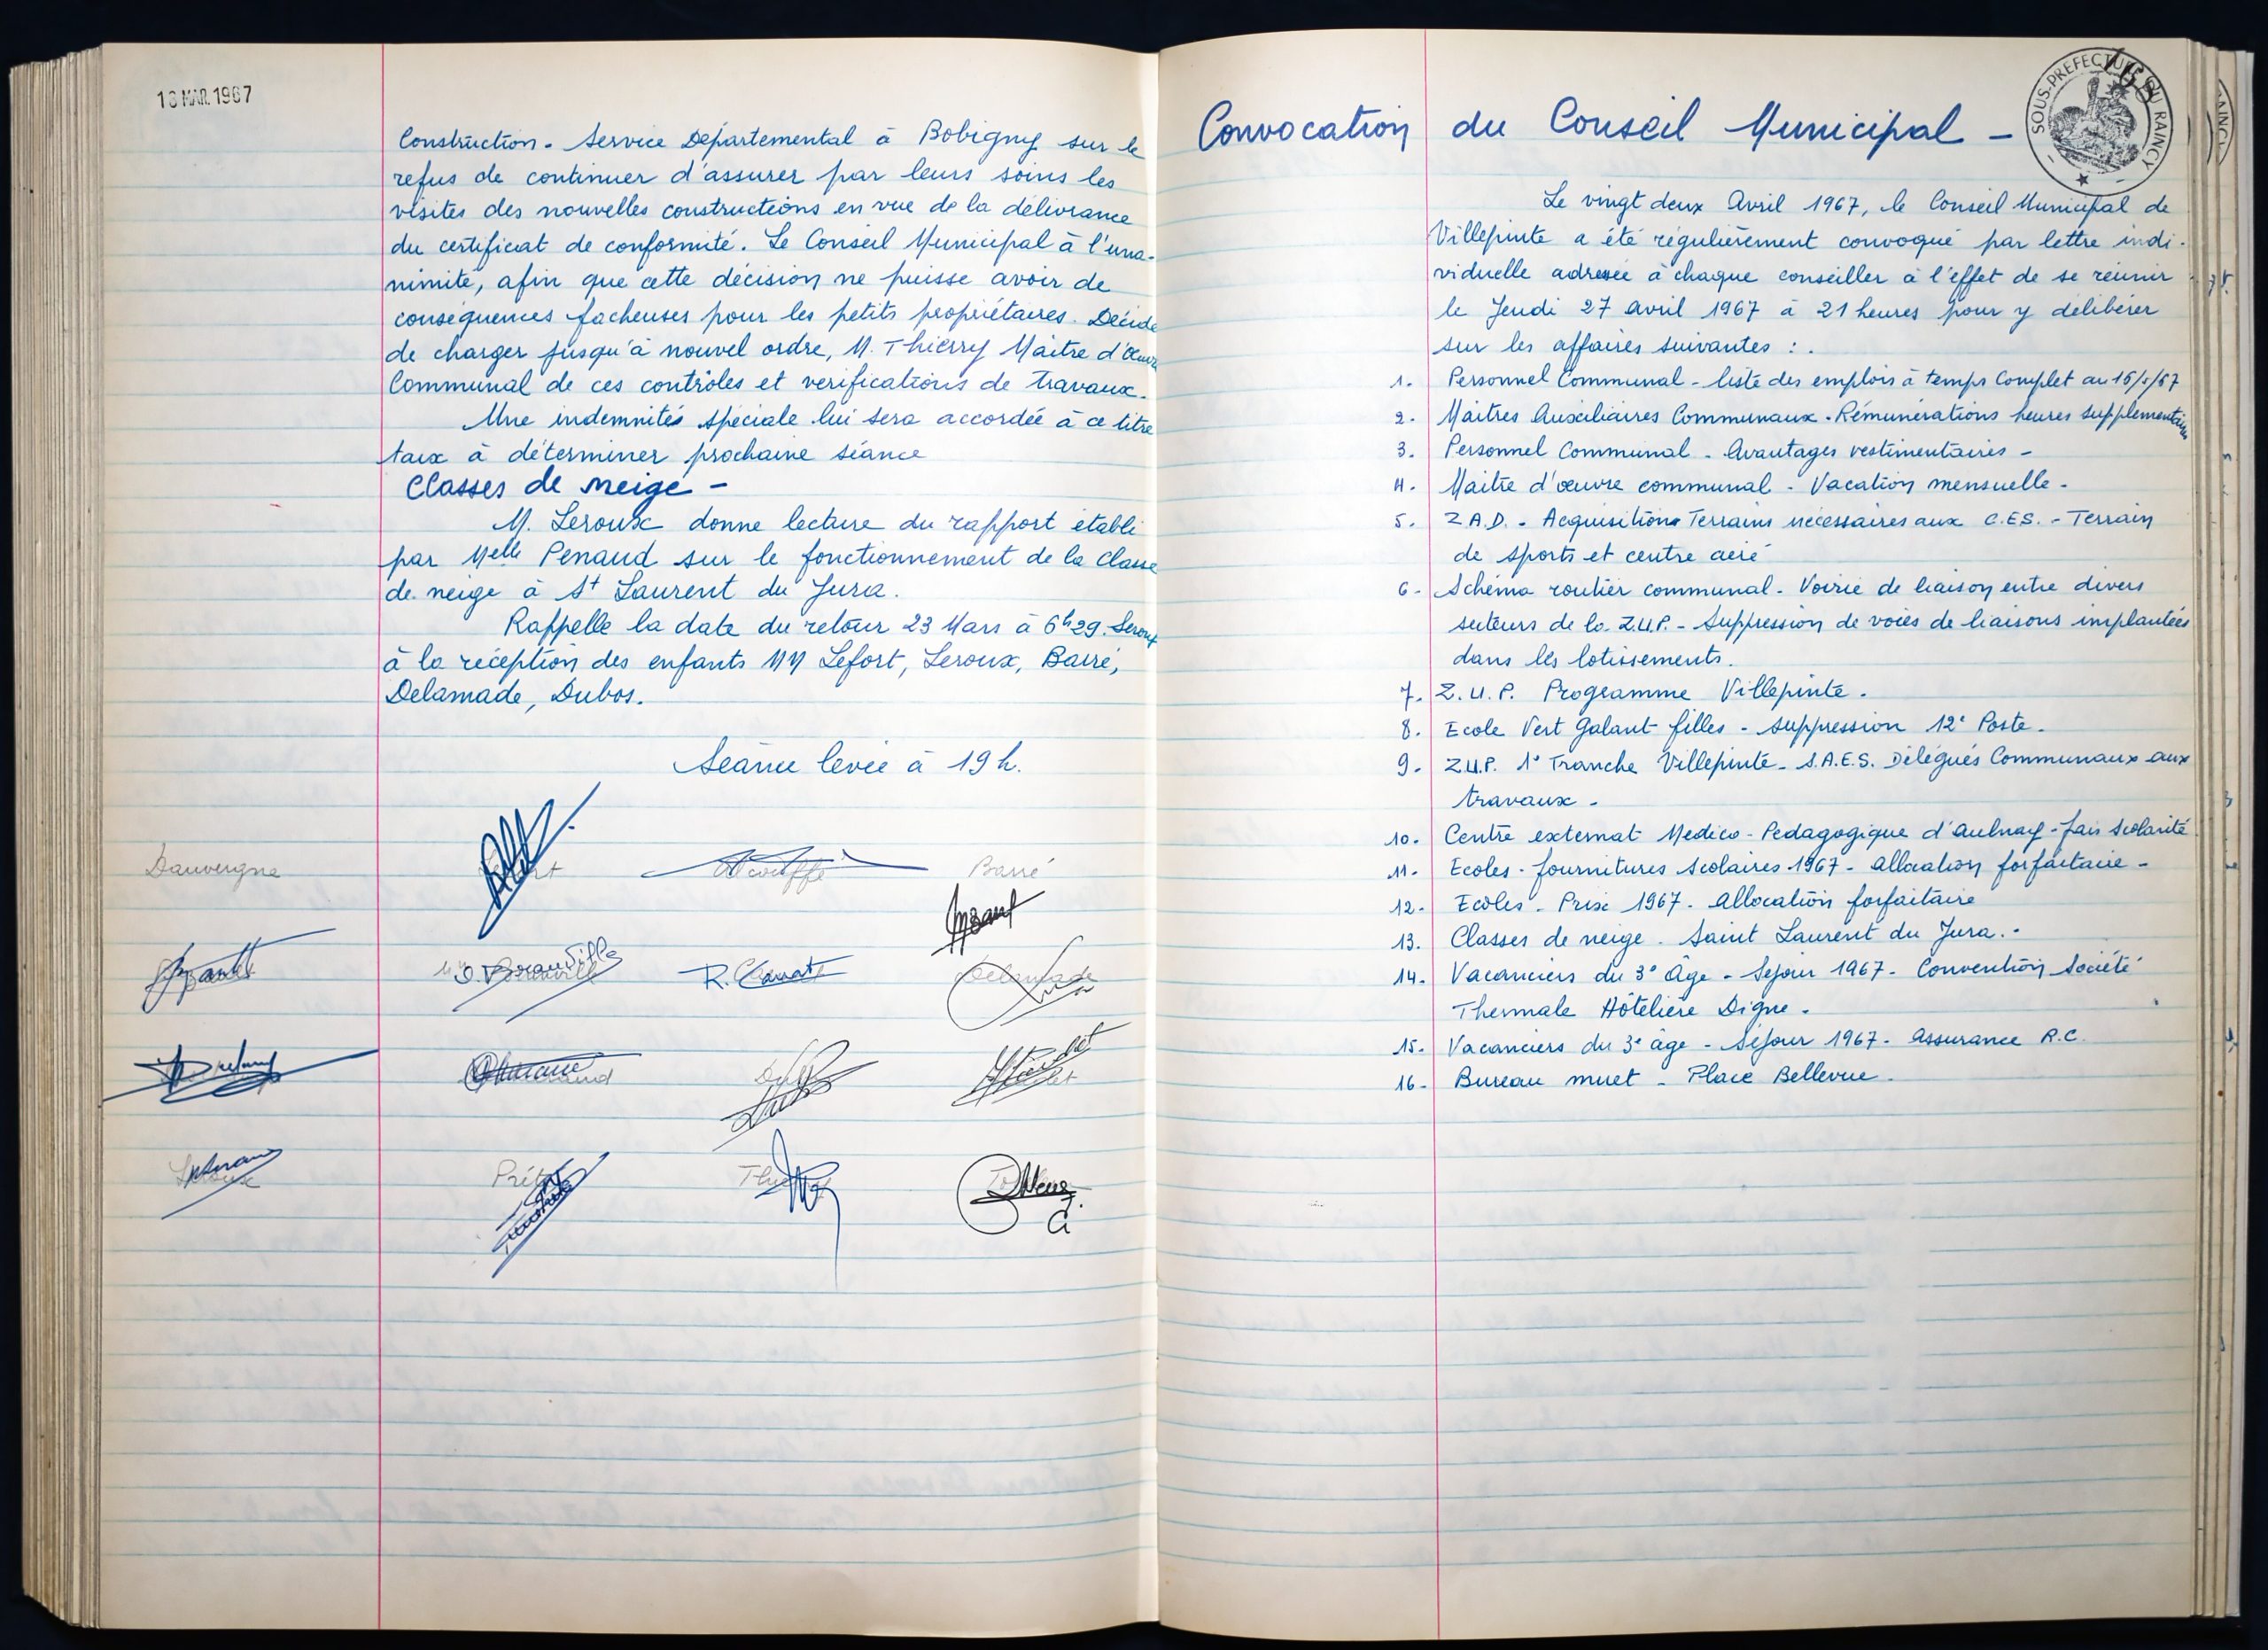 MAR. 1967
Construction - Service Départemental à Bobigny sur le
refus de continuer d'assurer par leurs soins les
visites des nouvelles constructions en vue de la délivrance
du certificat de conformité. Le Conseil Municipal à l'una-
nimité, afin que cette décision ne puisse avoir de
conséquences facheuses pour les petits propriétaires. Décide
de charger jusqu'à nouvel ordre, M. Thierry Maitre d'œuvre
Communal de ces contrôles et verifications de travaux.
Une indemnités spéciale lui sera accordée à ce titre
taux à déterminer prochaine séance
Classes de neige -
M. Leroux donne lecture du rapport établi
par Melle Penaud sur le fonctionnement de la classe
de neige à St Laurent du Jura.
Rappelle la date du retour 23 Mars à 6h29. Seront
à la réception des enfants MM Lefort, Leroux, Barré,
Delamade, Dubos.
Séance levée à 19 h.
Dauvergne
Barré
R. Clavat
Convocation du Conseil Municipal -
SOUS-PREFECTURE DU RAINCY
Le vingt deux Avril 1967, le Conseil Municipal de
Villepinte a été régulièrement convoqué par lettre indi-
viduelle adressée à chaque conseiller à l'effet de se réunir
le Jeudi 27 avril 1967 à 21 heures pour y délibérer
sur les affaires suivantes :.
1. Personnel Communal - liste des emplois à temps Complet au
2. Maitres Auxiliaires Communaux - Rémunérations heures supplémentaires
3. Personnel Communal - Avantages vestimentaires -
4. Maitre d'œuvre communal - Vacation mensuelle -
5. Z.A.D. - Acquisitions Terrains nécessaires aux C.E.S. - Terrain
de sports et centre aéré
6 - Schéma routier communal - Voirie de liaison entre divers
secteurs de la Z.U.P. - Suppression de voies de liaisons implantées
dans les lotissements.
7. Z.U.P. Programme Villepinte.
8. Ecole Vert Galant filles - suppression 12e Poste -
9 - Z.U.P. 1e Tranche Villepinte - S.A.E.S. Délégués Communaux aux
travaux -
10. Centre externat Medico - Pedagogique d'Aulnay - frais Scolarité
11 - Ecoles - fournitures Scolaires 1967 - allocation forfaitaire -
12 - Ecoles - Prix 1967 - Allocation forfaitaire
13. Classes de neige - Saint Laurent du Jura. -
14. Vacanciers du 3e Age - Séjour 1967 - Convention Société
Thermale Hôtelière Digne.
15 - Vacanciers du 3e age - Séjour 1967 - Assurance R.C.
16 - Bureau muet - Place Bellevue -